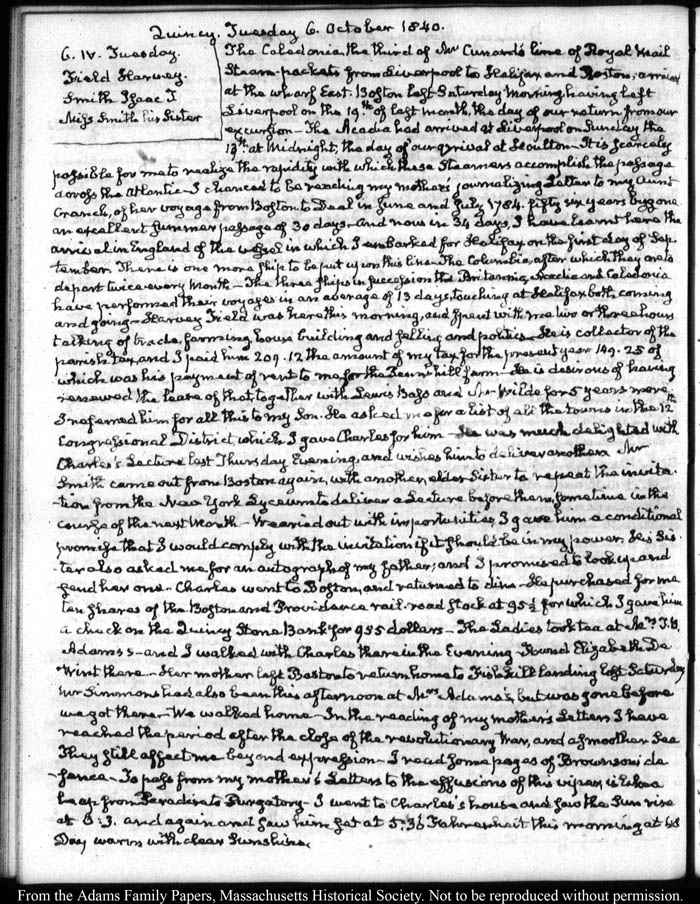 Quincy. Tuesday 6. October 1840.
6. IV. Tuesday.
Field Harvey.
Smith Isaac T
Miss Smith his Sister
The Caledonia, the third of Mr Cunard's line of Royal Mail
Steam-packets from Liverpool to Halifax and Boston, arrived
at the wharf East-Boston last Saturday Morning, having left
Liverpool on the 19th of last month, the day of our return from our
excursion— The Acadia had arrived at Liverpool on Sunday the
13th at Midnight, the day of our arrival at Houlton— It is scarcely
possible for me to realize the rapidity with which these Steamers accomplish the passage
across the Atlantic— I chanced to be reading my mother's journalizing Letter to my aunt
Cranch, of her voyage from Boston to Deal in June and July 1784. fifty six years bygone
an excellent summer passage of 30 days. And now in 34 days, I have learnt here the
arrival in England of the vessel in which I embarked for Halifax on the first day of Sep
tember. There is one more ship to be put upon this line. The Columbia, after which they are to
depart twice every Month— The three ships in succession the Britannia, Acadia and Caledonia
have performed their voyages in an average of 13 days, touching at Halifax both coming
and going— Harvey Field was here this morning, and spent with me two or three hours
talking of trade, farming, house building and selling and politics— He is collector of the
parish tax, and I paid him 209.12 the amount of my tax for the present year 149.25 of
which was his payment of rent to me for the Penn's hill farm— He is desirous of having
renewed the lease of that, together with Lewis Bass and Mr Wilde for 5 years more
I referred him for all this to my Son. He asked me for a list of all the towns in the 12th
Congressional District, which I gave Charles for him— He was much delighted with
Charles's Lecture last Thursday Evening, and wishes him to deliver another. Mr
Smith came out from Boston again, with another elder Sister to repeat the invita-
tion from the New York Lyceum to deliver a Lecture before them, sometime in the
course of the next Month— Wearied out with importunities, I gave him a conditional
promise that I would comply with the invitation if it should be in my power. His Sis-
ter also asked me for an autograph of my father, and I promised to look up and
send her one— Charles went to Boston, and returned to dine— He purchased for me
ten shares of the Boston and Providence rail-road Stock at 95½ for which I gave him
a check on the Quincy Stone Bank for 955 dollars— The Ladies took tea at Mrs T. B.
Adams's— and I walked with Charles there in the Evening— Found Elizabeth De
Wint there— Her mother left Boston to return home to Fishkill landing last Saturday
Mr Simmons had also been this afternoon at Mrs Adams's, but was gone before
we got there— We walked home— In the reading of my mother's Letters I have
reached the period after the close of the revolutionary War, and a smoother Sea
They still affect me beyond expression— I read some pages of Brownson's de
fence— To pass from my mother's Letters to the effusions of this viper, is to take a
leap from Paradise to Purgatory— I went to Charles's house and saw the Sun rise
at 6:3. and again and saw him set at 5:36 Fahrenheit this morning at 48
Day warm with clear Sunshine.
From the Adams Family Papers, Massachusetts Historical Society. Not to be reproduced without permission.